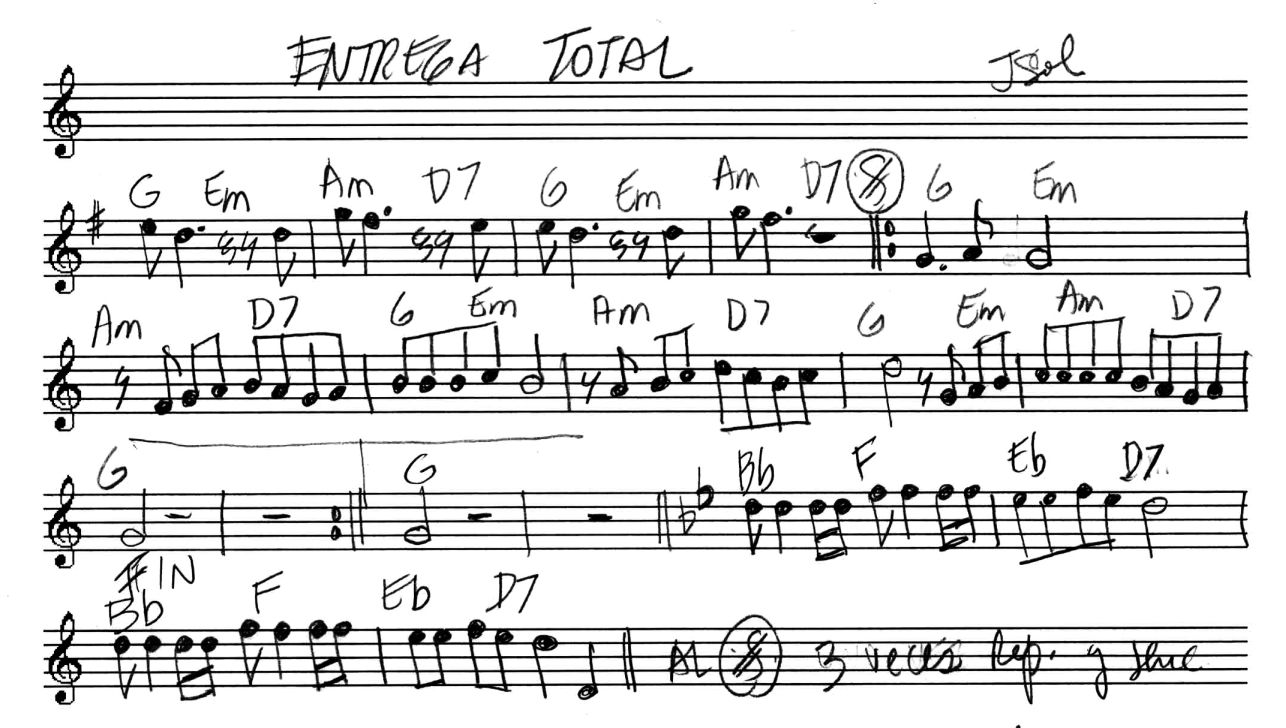 ENTREGA TOTAL JSol
G Em Am D7 G Em Am D7 G Em
Am D7 G Em Am D7 G Em Am D7
G G Bb F Eb D7
FIN
Bb F Eb D7
AL 3 veces Rep. y